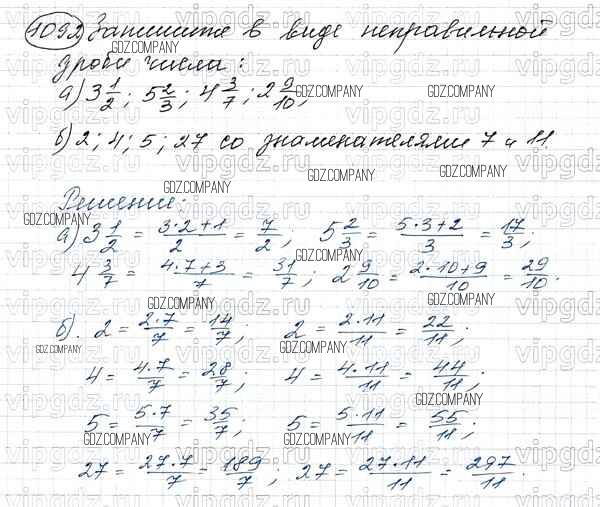 1092 Запишите в виде неправильной
дроби числа:
а) 3 1/2; 5 2/3; 4 3/7; 2 9/10;
б) 2; 4; 5; 27 со знаменателями 7 и 11.
Решение:
а) 3 1/2 = (3·2+1)/2 = 7/2; 5 2/3 = (5·3+2)/3 = 17/3;
4 3/7 = (4·7+3)/7 = 31/7; 2 9/10 = (2·10+9)/10 = 29/10.
б). 2 = 2·7/7 = 14/7; 2 = 2·11/11 = 22/11;
4 = 4·7/7 = 28/7; 4 = 4·11/11 = 44/11;
5 = 5·7/7 = 35/7; 5 = 5·11/11 = 55/11;
27 = 27·7/7 = 189/7; 27 = 27·11/11 = 297/11.